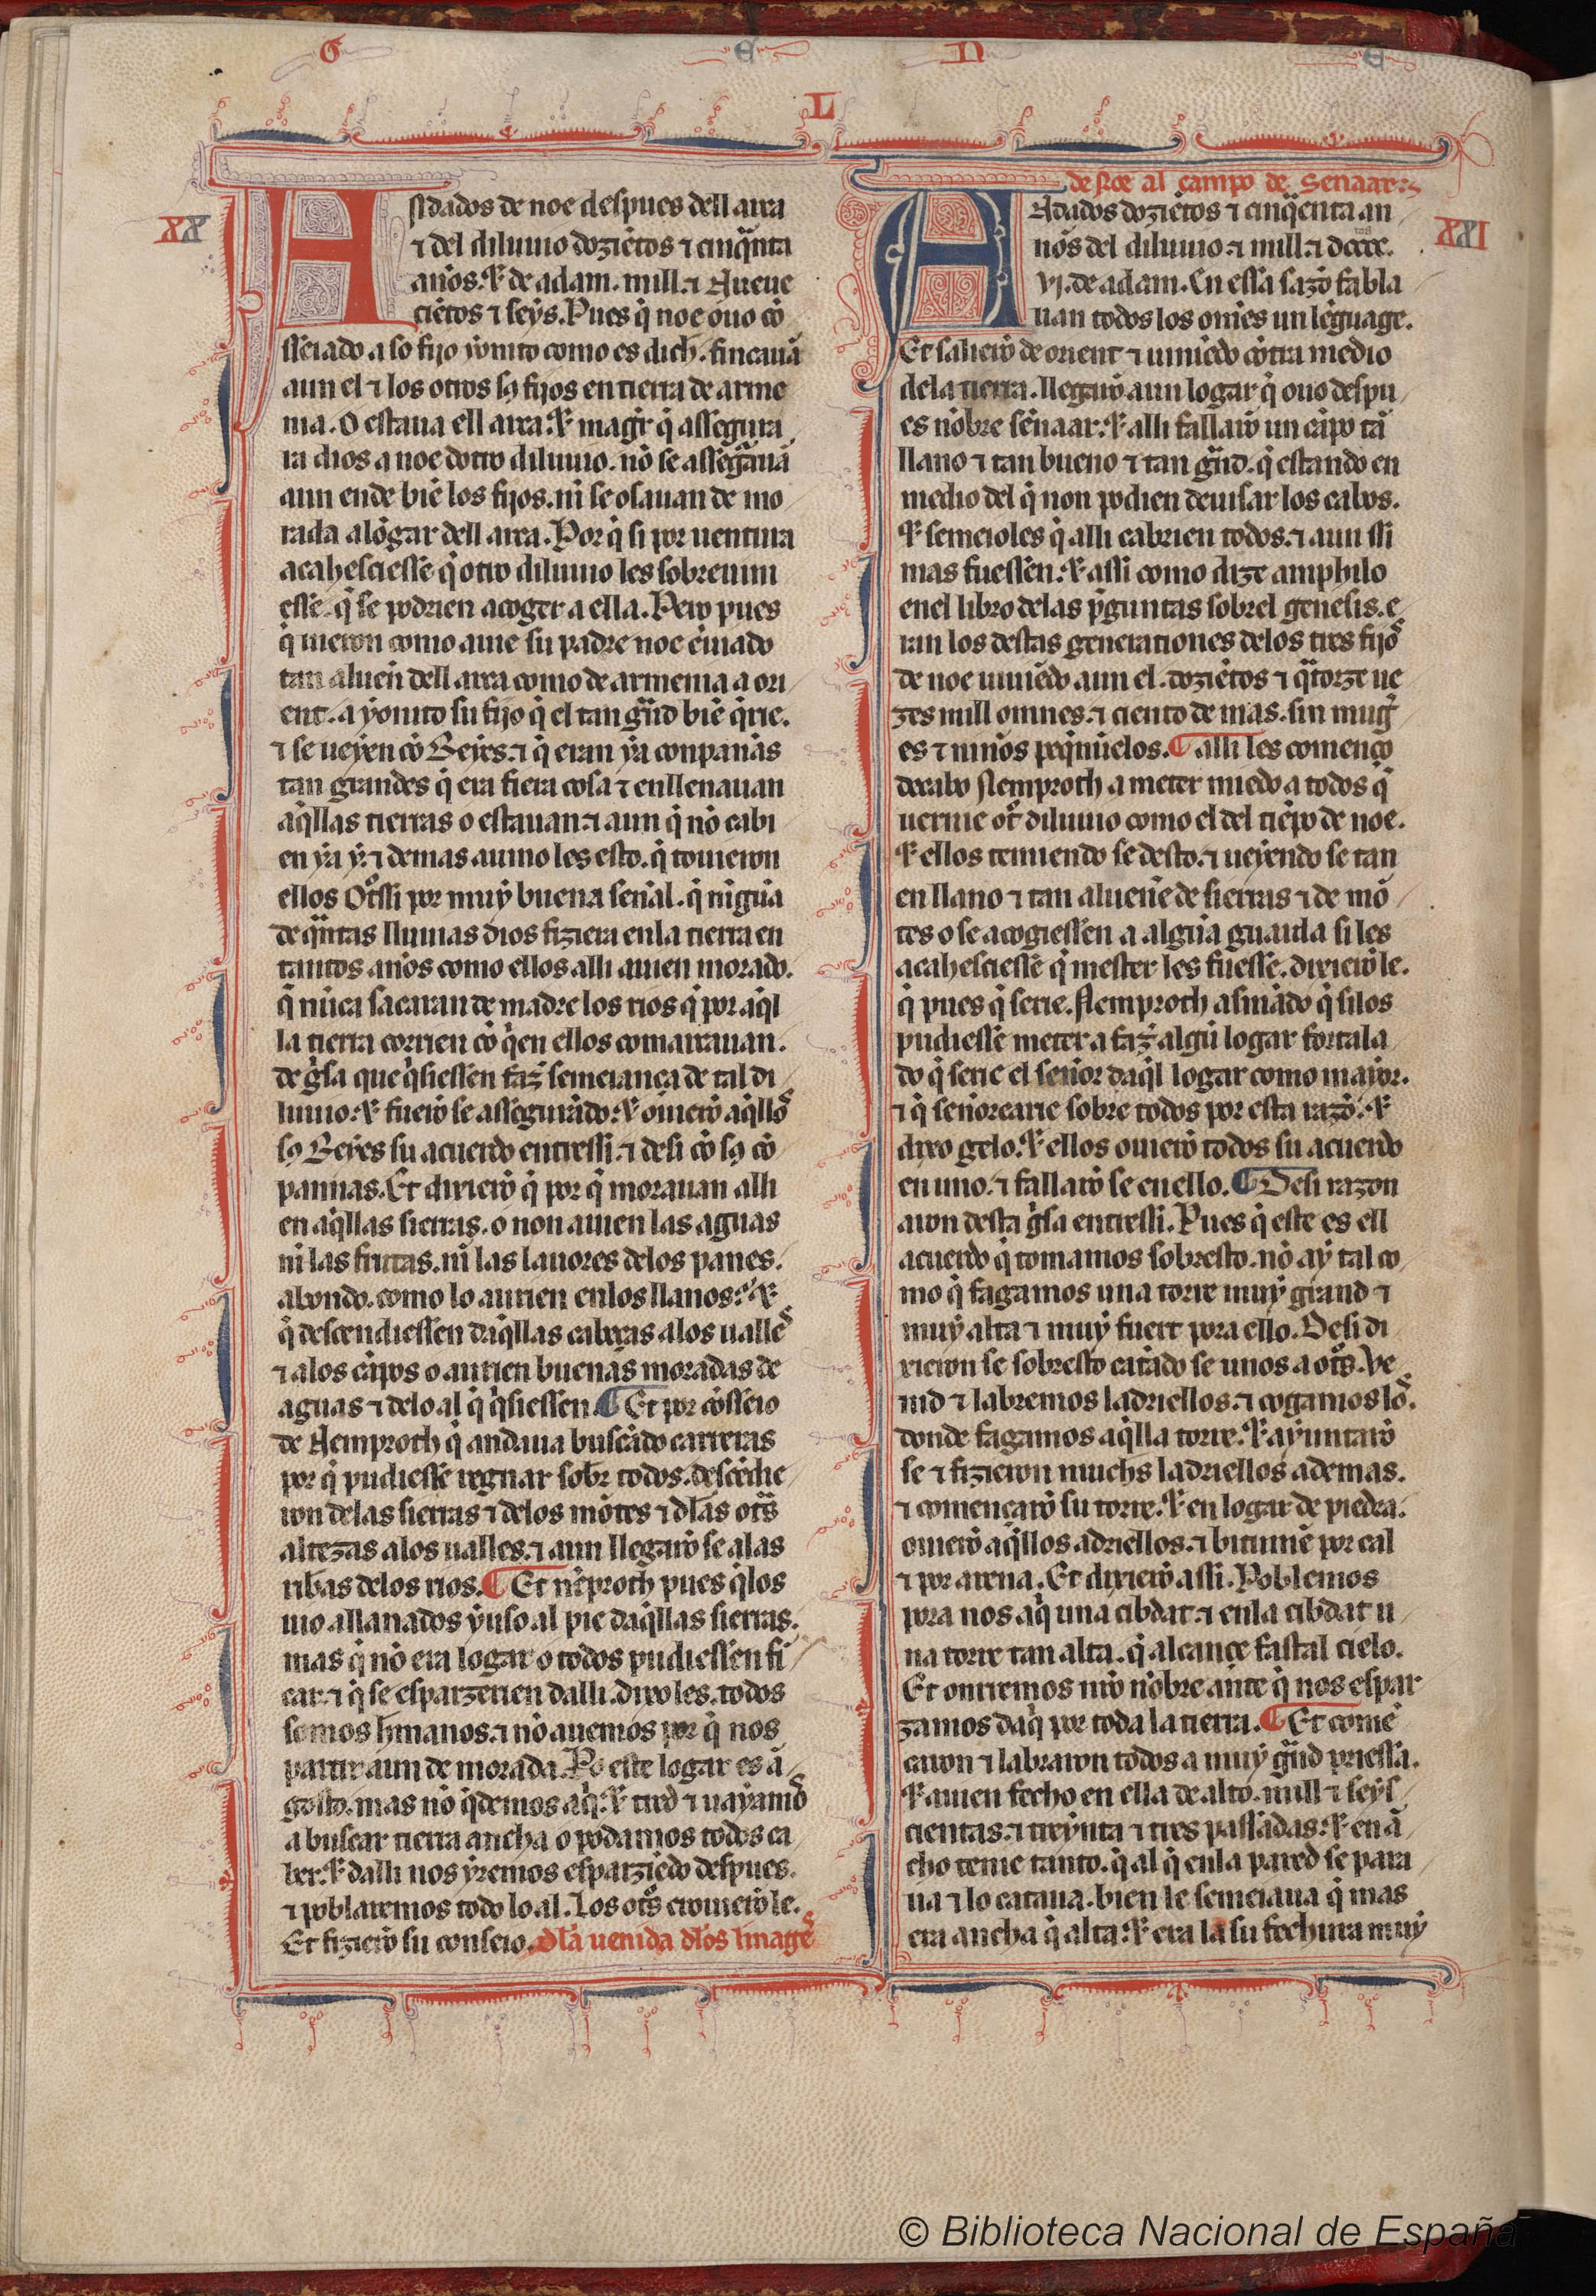 G E N E
L
XX
Andados de noe despues dell arca
⁊ del diluuio doziẽtos ⁊ cinq̃nta
anños. ⁊ de adam. mill. ⁊ Nueue
ciẽtos ⁊ seẏs. Pues q̃ noe ouo cõ
sseiado a so fijo ẏonito como es dich. fincauã
aun el ⁊ los otros sꝯ fijos en tierra de arme
nia. O estaua ell arca. ⁊ magr̃ q̃ assegura
ra dios a noe dotro diluuio. nõ se assegurauã
aun ende biẽ los fijos. ni se osauan de mo
rada alõgar dell arca. Por q̃ si por uentura
acahesciesse q̃ otro diluuio les sobreuini
esse. q̃ se podrien acoger a ella. Pero pues
q̃ uieron como auie su padre noe ẽuiado
tan aluen dell arca como de armenia a ori
ent. a ẏonito su fijo q̃ el tan gr̃nd biẽ q̃rie.
⁊ se ueẏen cõ Reẏes. ⁊ q̃ eran ẏa conpanñas
tan grandes q̃ era fiera cosa ⁊ enllenauan
aq̃llas tierras o estauan. ⁊ aun q̃ nõ cabi
en ẏa ẏ. ⁊ demas auino les esto. q̃ touieron
ellos Otͦssi por muẏ buena sennal. q̃ nigũa
de q̃ntas lluuias dios fiziera enla tierra en
tantos annos como ellos alli auien morado.
q̃ nũca sacaran de madre los rios q̃ por aq̃l
la tierra corrien cõ q̃en ellos comarcauan.
de g̃sa que q̃siessen faz̃ semeiança de tal di
luuio. ⁊ fuerõ se assegurãdo. ⁊ ouierõ aq̃llos
sꝯ Reẏes su acuerdo entressi. ⁊ desi cõ sꝯ cõ
pannas. Et dixierõ q̃ por q̃ morauan alli
en aq̃llas sierras. o non auien las aguas
ni las frutas. ni las lauores delos panes.
abondo. como lo aurien enlos llanos. ⁊
q̃ descendiessen daq̃llas cabeças alos ualles
⁊ alos cãpos o aurien buenas moradas de
aguas ⁊ delo al q̃ q̃siessen. ¶ Et por cõsseio
de Nemproth q̃ andaua buscãdo carreras
por q̃ pudiesse regnar sobr̃ todos. descẽdie
ron delas sierras ⁊ delos mõtes ⁊ dl̃as otr̃s
altezas alos ualles. ⁊ aun llegarõ se alas
ribas delos rios. ¶ Et nẽproth pues q̃los
uio allanados ẏuso al pie daq̃llas sierras.
mas q̃ nõ era logar o todos pudiessen fi
car. ⁊ q̃ se esparzerien dalli. dixo les. todos
somos hr̃manos. ⁊ nõ auemos por q̃ nos
partir aun de morada. Po este logar es ã
gosto. mas nõ q̃demos aq̃. ⁊ tred ⁊ uaẏamos
a buscar tierra ancha o podamos todos ca
ber. ⁊ dalli nos ẏremos esparziẽdo despues.
⁊ poblaremos todo lo al. Los otͦs crouierõ le.
Et fizierõ su conseio. Dl̃a uenida dl̃os linages
de Noe al campo de Senaar.
XXI
Andados doziẽtos ⁊ cinq̃enta an
nos del diluuio. ⁊ mill. ⁊ dcccc.
vj. de adam. En essa sazõ fabla
uan todos los omnes un lẽguage.
Et salierõ de orient ⁊ uiniẽdo cõtra medio
dela tierra. llegarõ aun logar q̃ ouo despu
es nõbre senaar. ⁊ alli fallarõ un cãpo tã
llano ⁊ tan bueno ⁊ tan gr̃nd. q̃ estando en
medio del q̃ non podien deuisar los cabos.
⁊ semeioles q̃ alli cabrien todos. ⁊ aun ssi
mas fuessen. ⁊ assi como dize amphilo
enel libro delas p̃guntas sobrel genesis. e
ran los destas generationes delos tres fijos
de noe uiuiẽdo aun el. doziẽtos ⁊ q̃torze ue
zes mill omnes. ⁊ ciento de mas. sin mug̃
es ⁊ ninnos peq̃nnuelos. ¶ alli les començo
decabo Nemproth a meter miedo a todos q̃
uernie otͦ diluuio como el del tiẽpo de noe.
⁊ ellos temiendo se desto. ⁊ ueẏendo se tan
en llano ⁊ tan aluenne de sierras ⁊ de mõ
tes o se acogiessen a alguna guarida si les
acahesciesse q̃ mester les fuesse. dixierõ le.
q̃ pues q̃ serie. Nemproth asmãdo q̃ silos
pudiesse meter a faz̃ algũ logar fortala
do q̃ serie el sennor daq̃l logar como maẏor.
⁊ q̃ sennorearie sobre todos por esta razõ. ⁊
dixo gelo. ⁊ ellos ouierõ todos su acuerdo
en uno. ⁊ fallarõ se en ello. ¶ Desi razon
aron desta g̃sa entressi. Pues q̃ este es ell
acuerdo q̃ tomamos sobresto. nõ aẏ tal co
mo q̃ fagamos una torre muẏ grand ⁊
muẏ alta ⁊ muẏ fuert pora ello. Desi di
xieron se sobresto catãdo se unos a otͦs. Ve
nid ⁊ labremos ladriellos. ⁊ cogamos los.
donde fagamos aq̃lla torre. ⁊ aẏuntarõ
se ⁊ fizieron muchs ladriellos ademas.
⁊ començarõ su torre. ⁊ en logar de piedra.
ouierõ aq̃llos adriellos. ⁊ bitumẽ por cal
⁊ por arena. Et dixierõ assi. Poblemos
pora nos aq̃ una cibdat. ⁊ enla cibdat u
na torre tan alta. q̃ alcançe fastal cielo.
Et onrremos nrõ nõbre ante q̃ nos espar
zamos daq̃ por toda la tierra. ¶ Et come
çaron ⁊ labraron todos a muẏ gr̃nd priessa.
⁊ auien fecho en ella de alto. mill ⁊ seẏs
cientas. ⁊ treẏnta ⁊ tres passadas. ⁊ en ã
cho tenie tanto. q̃ al q̃ enla pared se para
ua ⁊ lo cataua. bien le semeiaua q̃ mas
era ancha q̃ alta. ⁊ era la su fechura muẏ
© Biblioteca Nacional de España